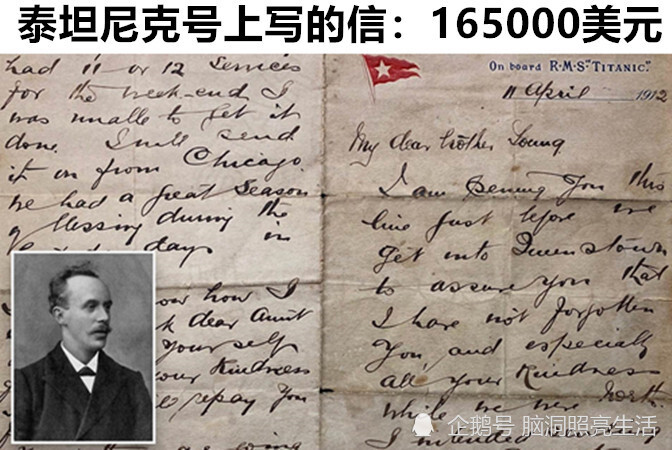 泰坦尼克号上写的信：165000美元
had 11 or 12 Services
for the week-end I
was unable to get it
done. I will send
it on from Chicago
We had a great Season
of blessing during the
days in
how I
dear Aunt
yourself
your Kindness
repay you
On board R.M.S. "TITANIC."
11 April 1912
My dear brother Young
I am penning you this
line just before we
get into Queenstown
to assure you that
I have not forgotten
you, and especially
all your Kindness
while we were North
I intended
企鹅号 脑洞照亮生活